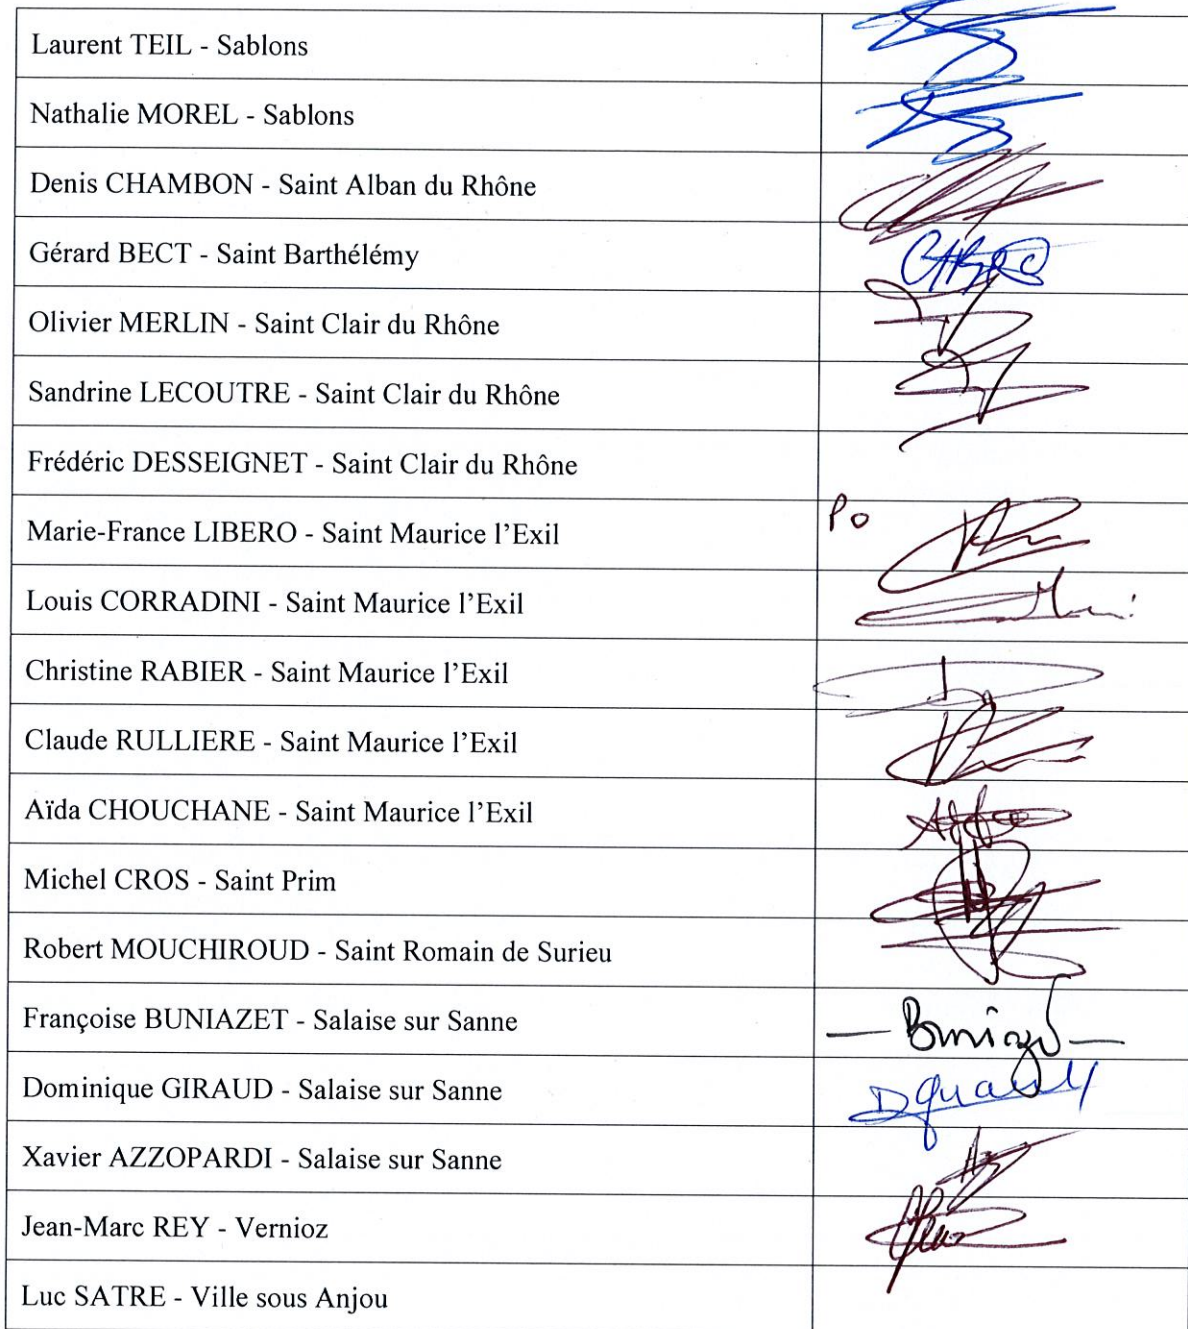 Laurent TEIL - Sablons
Nathalie MOREL - Sablons
Denis CHAMBON - Saint Alban du Rhône
Gérard BECT - Saint Barthélémy
Olivier MERLIN - Saint Clair du Rhône
Sandrine LECOUTRE - Saint Clair du Rhône
Frédéric DESSEIGNET - Saint Clair du Rhône
Marie-France LIBERO - Saint Maurice l’Exil Po
Louis CORRADINI - Saint Maurice l’Exil
Christine RABIER - Saint Maurice l’Exil
Claude RULLIERE - Saint Maurice l’Exil
Aïda CHOUCHANE - Saint Maurice l’Exil
Michel CROS - Saint Prim
Robert MOUCHIROUD - Saint Romain de Surieu
Françoise BUNIAZET - Salaise sur Sanne
Dominique GIRAUD - Salaise sur Sanne
Xavier AZZOPARDI - Salaise sur Sanne
Jean-Marc REY - Vernioz
Luc SATRE - Ville sous Anjou